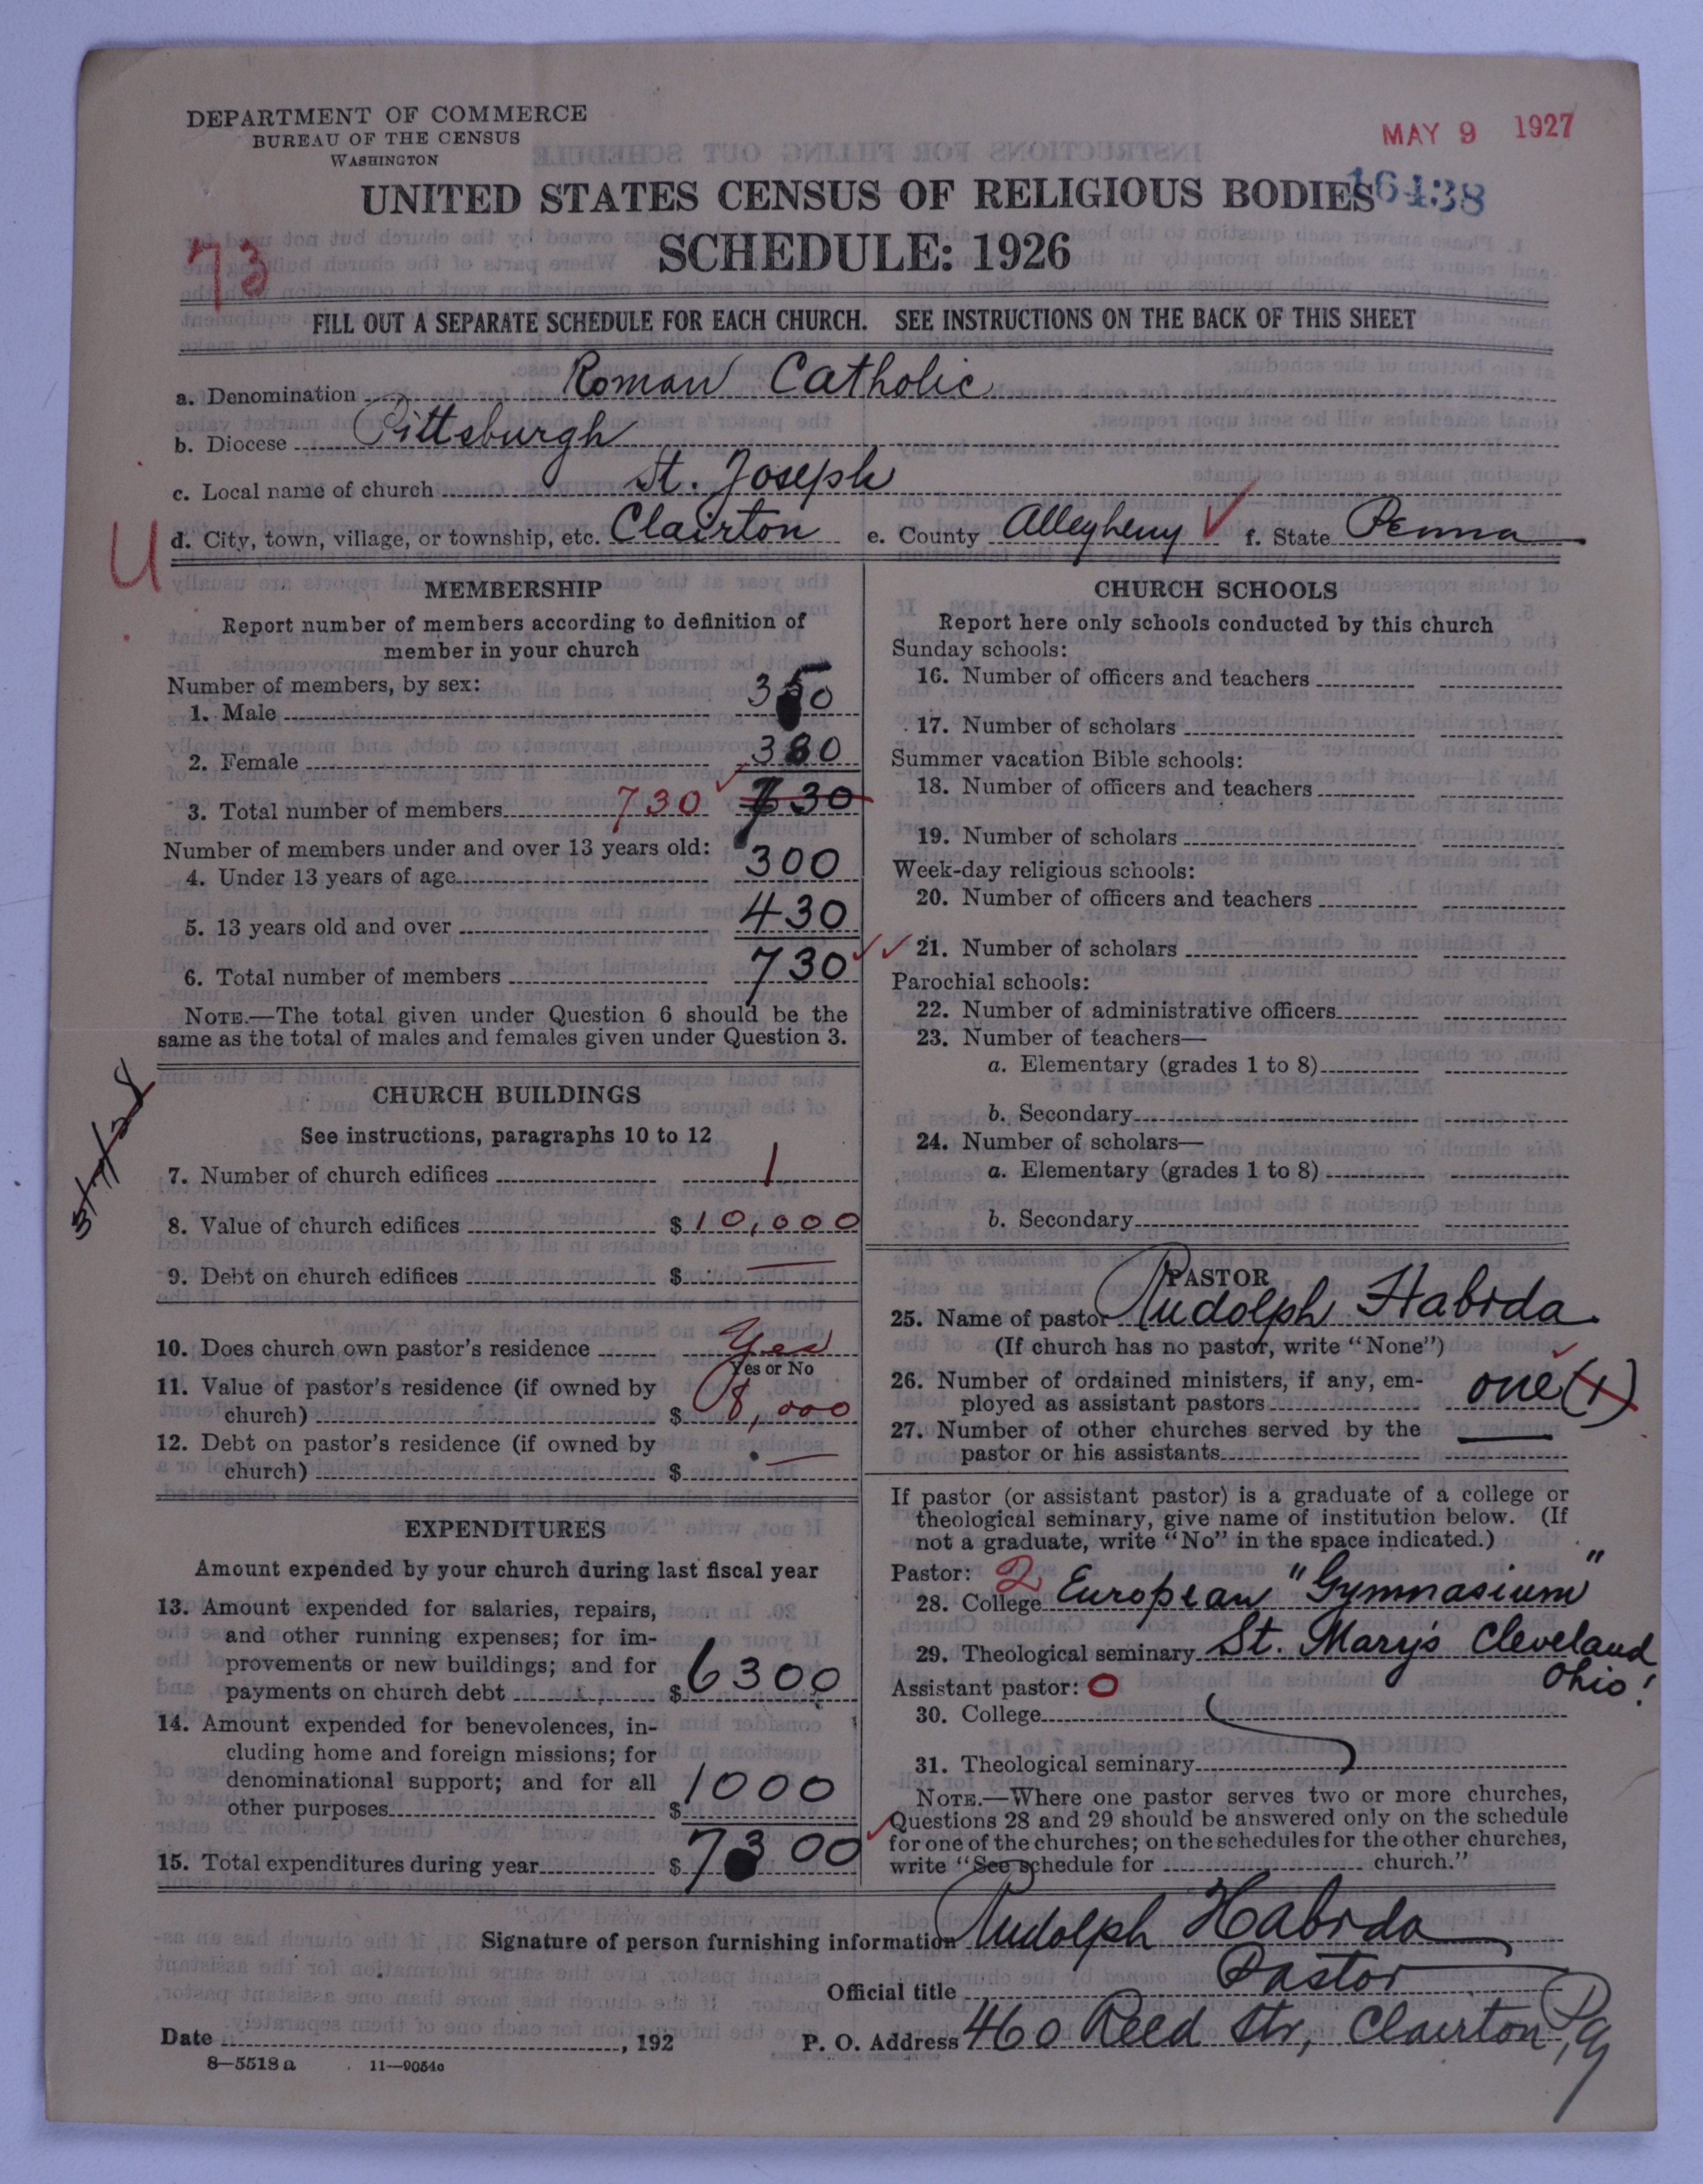 DEPARTMENT OF COMMERCE
BUREAU OF THE CENSUS
WASHINGTON
MAY 9 1927
16438
UNITED STATES CENSUS OF RELIGIOUS BODIES
SCHEDULE: 1926
73
FILL OUT A SEPARATE SCHEDULE FOR EACH CHURCH. SEE INSTRUCTIONS ON THE BACK OF THIS SHEET
a. Denomination Roman Catholic
b. Diocese Pittsburgh
c. Local name of church St. Joseph
U
d. City, town, village, or township, etc. Clairton e. County Allegheny f. State Penna
MEMBERSHIP
Report number of members according to definition of
member in your church
Number of members, by sex:
1. Male 350
2. Female 380
3. Total number of members 730 730
Number of members under and over 13 years old:
4. Under 13 years of age 300
5. 13 years old and over 430
6. Total number of members 730
NOTE.—The total given under Question 6 should be the
same as the total of males and females given under Question 3.
CHURCH BUILDINGS
See instructions, paragraphs 10 to 12
7. Number of church edifices 1
8. Value of church edifices $ 10,000
9. Debt on church edifices $ —
10. Does church own pastor's residence Yes
Yes or No
11. Value of pastor's residence (if owned by
church) $ 8,000
12. Debt on pastor's residence (if owned by
church) $ —
EXPENDITURES
Amount expended by your church during last fiscal year
13. Amount expended for salaries, repairs,
and other running expenses; for im-
provements or new buildings; and for
payments on church debt $ 6300
14. Amount expended for benevolences, in-
cluding home and foreign missions; for
denominational support; and for all
other purposes $ 1000
15. Total expenditures during year $ 7300
CHURCH SCHOOLS
Report here only schools conducted by this church
Sunday schools:
16. Number of officers and teachers
17. Number of scholars
Summer vacation Bible schools:
18. Number of officers and teachers
19. Number of scholars
Week-day religious schools:
20. Number of officers and teachers
21. Number of scholars
Parochial schools:
22. Number of administrative officers
23. Number of teachers—
a. Elementary (grades 1 to 8)
b. Secondary
24. Number of scholars—
a. Elementary (grades 1 to 8)
b. Secondary
PASTOR
25. Name of pastor Rudolph Habrda
(If church has no pastor, write "None")
26. Number of ordained ministers, if any, em-
ployed as assistant pastors one (1)
27. Number of other churches served by the
pastor or his assistants —
If pastor (or assistant pastor) is a graduate of a college or
theological seminary, give name of institution below. (If
not a graduate, write "No" in the space indicated.)
Pastor: 2
28. College European "Gymnasium"
29. Theological seminary St. Mary's Cleveland
Ohio!
Assistant pastor: 0
30. College
31. Theological seminary
NOTE.—Where one pastor serves two or more churches,
Questions 28 and 29 should be answered only on the schedule
for one of the churches; on the schedules for the other churches,
write "See schedule for church."
Signature of person furnishing information Rudolph Habrda
Official title Pastor
Date , 192 P. O. Address 460 Reed Str, Clairton, Pa
8—5518 a 11—9054c